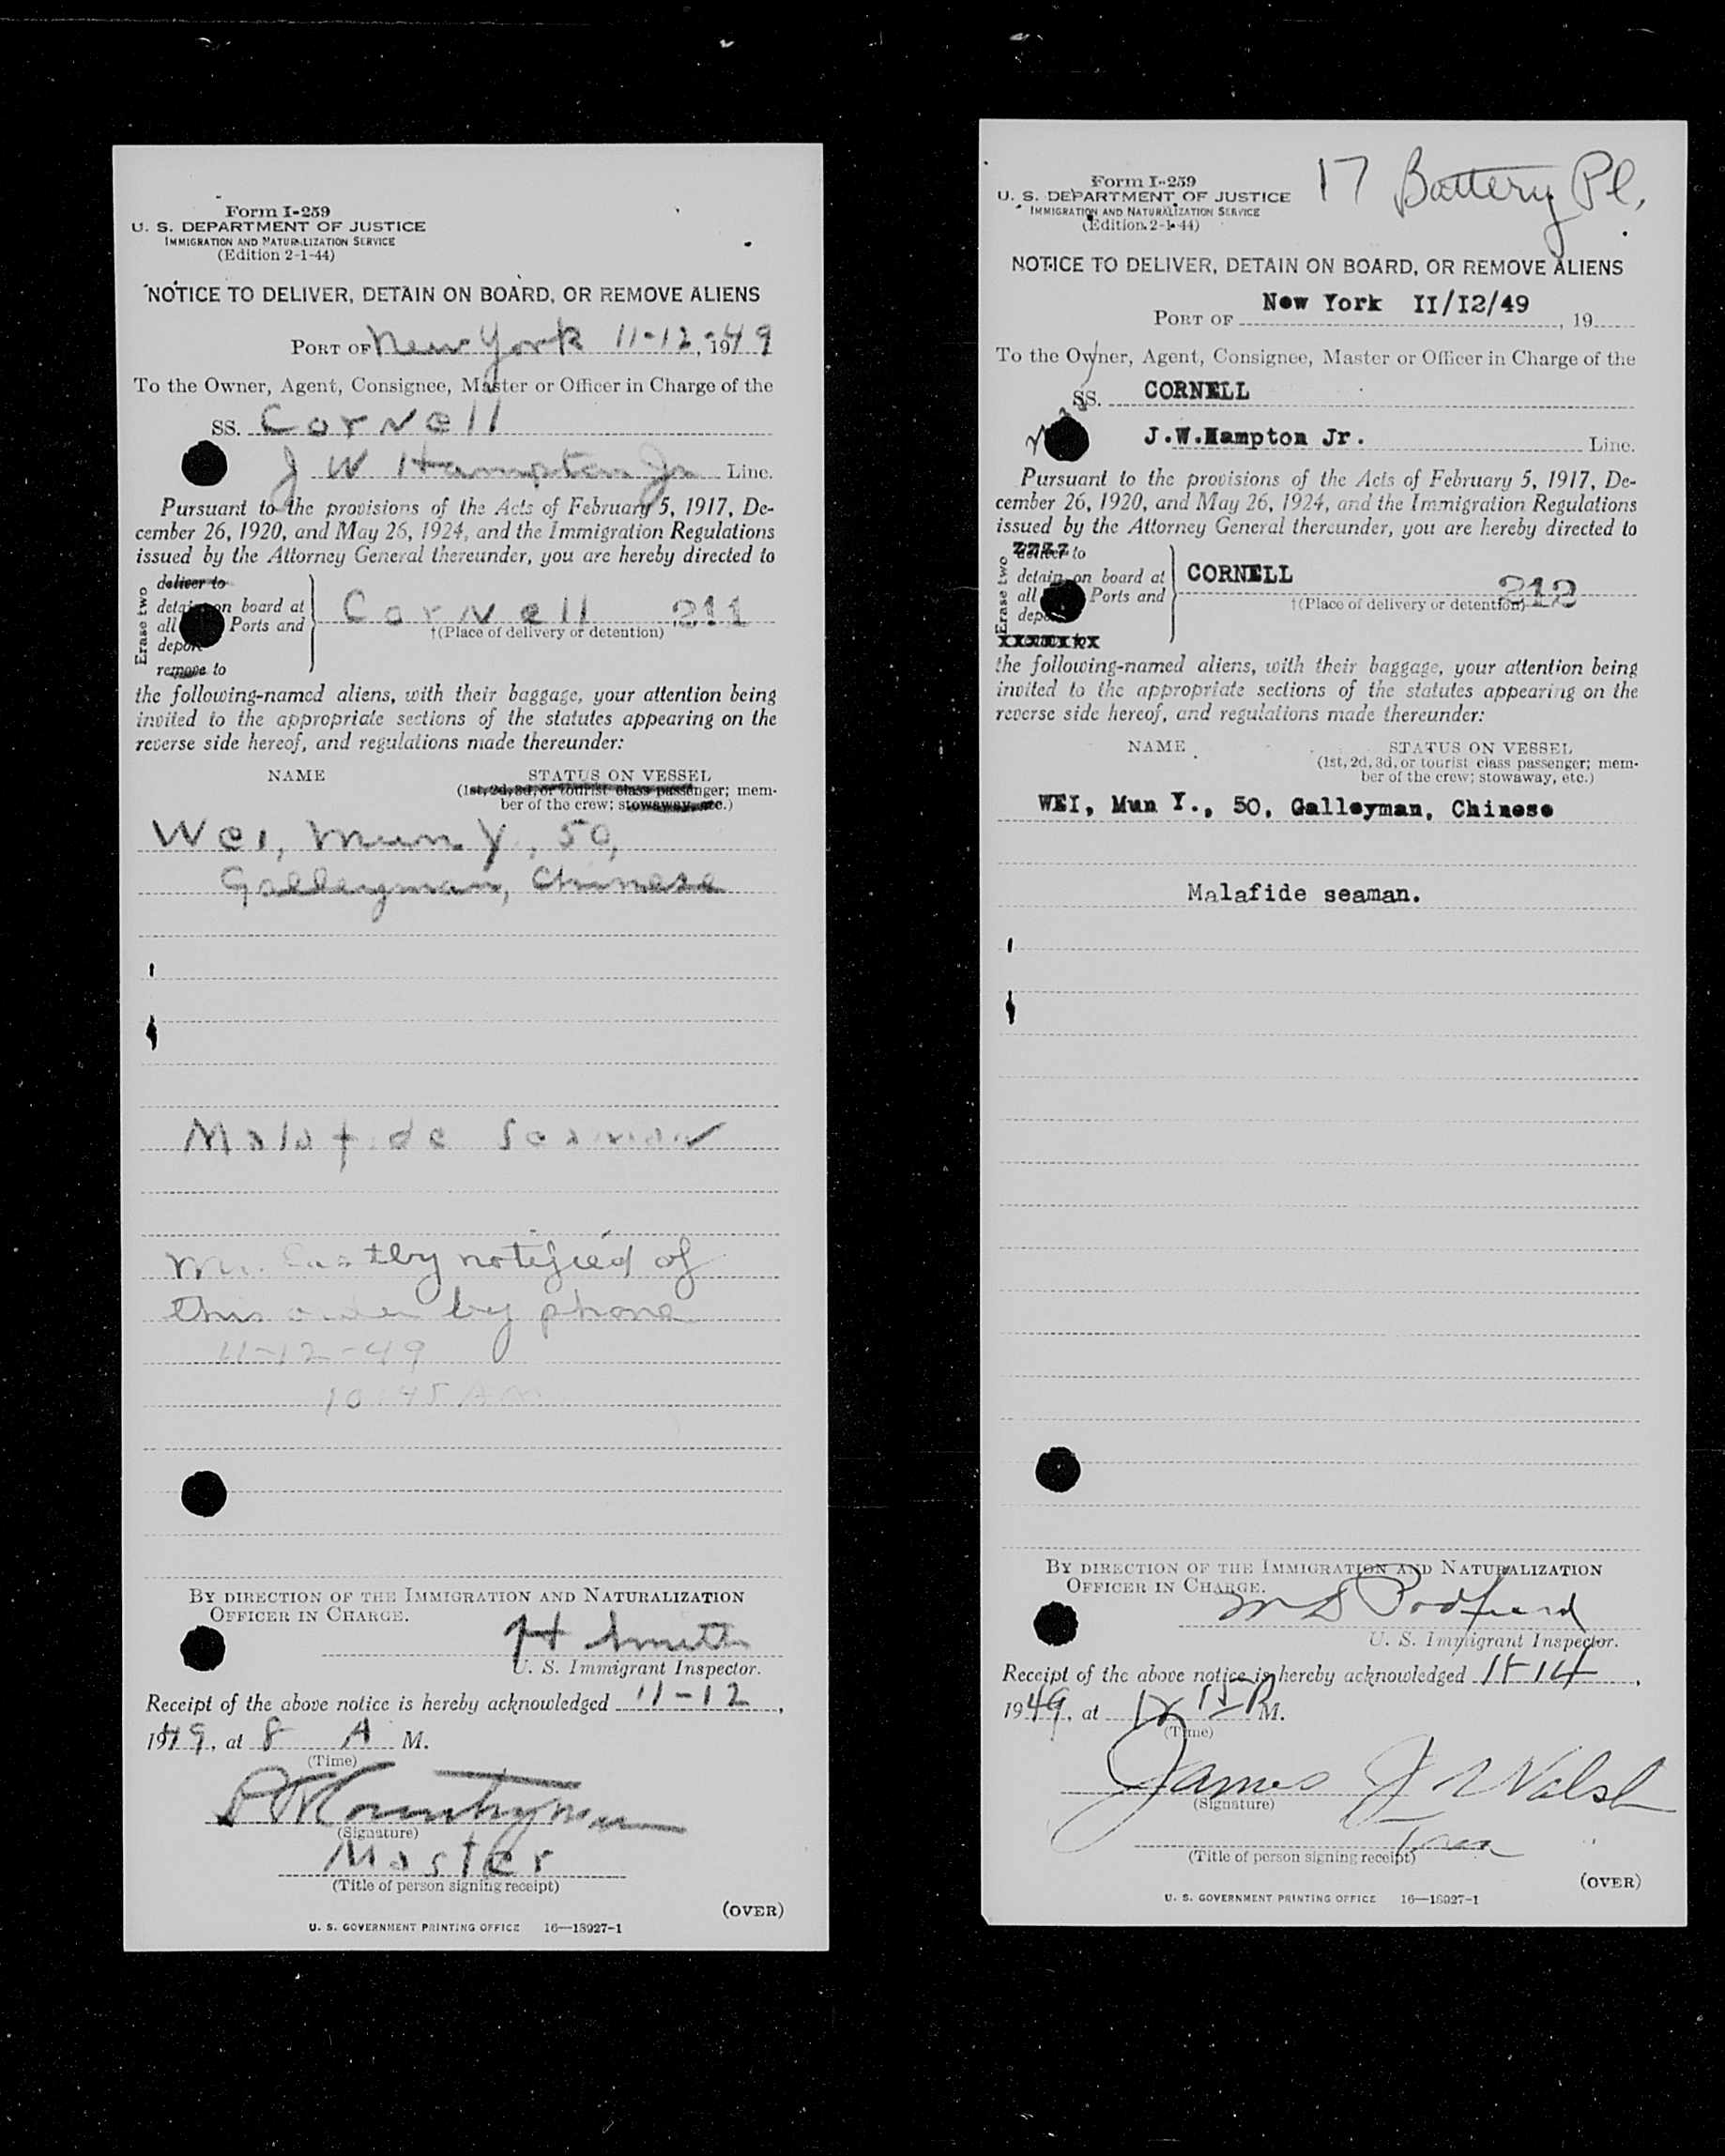 Form I-259
U. S. DEPARTMENT OF JUSTICE
IMMIGRATION AND NATURALIZATION SERVICE
(Edition 2-1-44)
NOTICE TO DELIVER, DETAIN ON BOARD, OR REMOVE ALIENS
PORT OF New York 11-12, 1949
To the Owner, Agent, Consignee, Master or Officer in Charge of the
SS. Cornell
J W Hampton Jr Line.
Pursuant to the provisions of the Acts of February 5, 1917, De-
cember 26, 1920, and May 26, 1924, and the Immigration Regulations
issued by the Attorney General thereunder, you are hereby directed to
Erase two
deliver to
detain on board at
all Ports and
deport
remove to
Cornell 211
†(Place of delivery or detention)
the following-named aliens, with their baggage, your attention being
invited to the appropriate sections of the statutes appearing on the
reverse side hereof, and regulations made thereunder:
NAME STATUS ON VESSEL
(1st, 2d, 3d, or tourist class passenger; mem-
ber of the crew; stowaway, etc.)
Wei, Mun Y., 50,
Galleyman, Chinese
Malafide Seaman
notified of
this order by phone
11-12-49
10:45 AM
BY DIRECTION OF THE IMMIGRATION AND NATURALIZATION
OFFICER IN CHARGE.
H Smith
U. S. Immigrant Inspector.
Receipt of the above notice is hereby acknowledged 11-12,
1949, at 8 A M.
(Time)
(Signature)
Master
(Title of person signing receipt)
(OVER)
U. S. GOVERNMENT PRINTING OFFICE 16—18927-1
17 Battery Pl.
Form I-259
U. S. DEPARTMENT OF JUSTICE
IMMIGRATION AND NATURALIZATION SERVICE
(Edition 2-1-44)
NOTICE TO DELIVER, DETAIN ON BOARD, OR REMOVE ALIENS
PORT OF New York 11/12/49, 19
To the Owner, Agent, Consignee, Master or Officer in Charge of the
SS. CORNELL
J.W.Hampton Jr. Line.
Pursuant to the provisions of the Acts of February 5, 1917, De-
cember 26, 1920, and May 26, 1924, and the Immigration Regulations
issued by the Attorney General thereunder, you are hereby directed to
Erase two
deliver to
detain on board at
all Ports and
CORNELL 212
†(Place of delivery or detention)
the following-named aliens, with their baggage, your attention being
invited to the appropriate sections of the statutes appearing on the
reverse side hereof, and regulations made thereunder:
NAME STATUS ON VESSEL
(1st, 2d, 3d, or tourist class passenger; mem-
ber of the crew; stowaway, etc.)
WEI, Mun Y., 50, Galleyman, Chinese
Malafide seaman.
BY DIRECTION OF THE IMMIGRATION AND NATURALIZATION
OFFICER IN CHARGE.
U. S. Immigrant Inspector.
Receipt of the above notice is hereby acknowledged 11-14,
1949, at M.
(Time)
James J Walsh
(Signature)
(Title of person signing receipt)
(OVER)
U. S. GOVERNMENT PRINTING OFFICE 16—18927-1